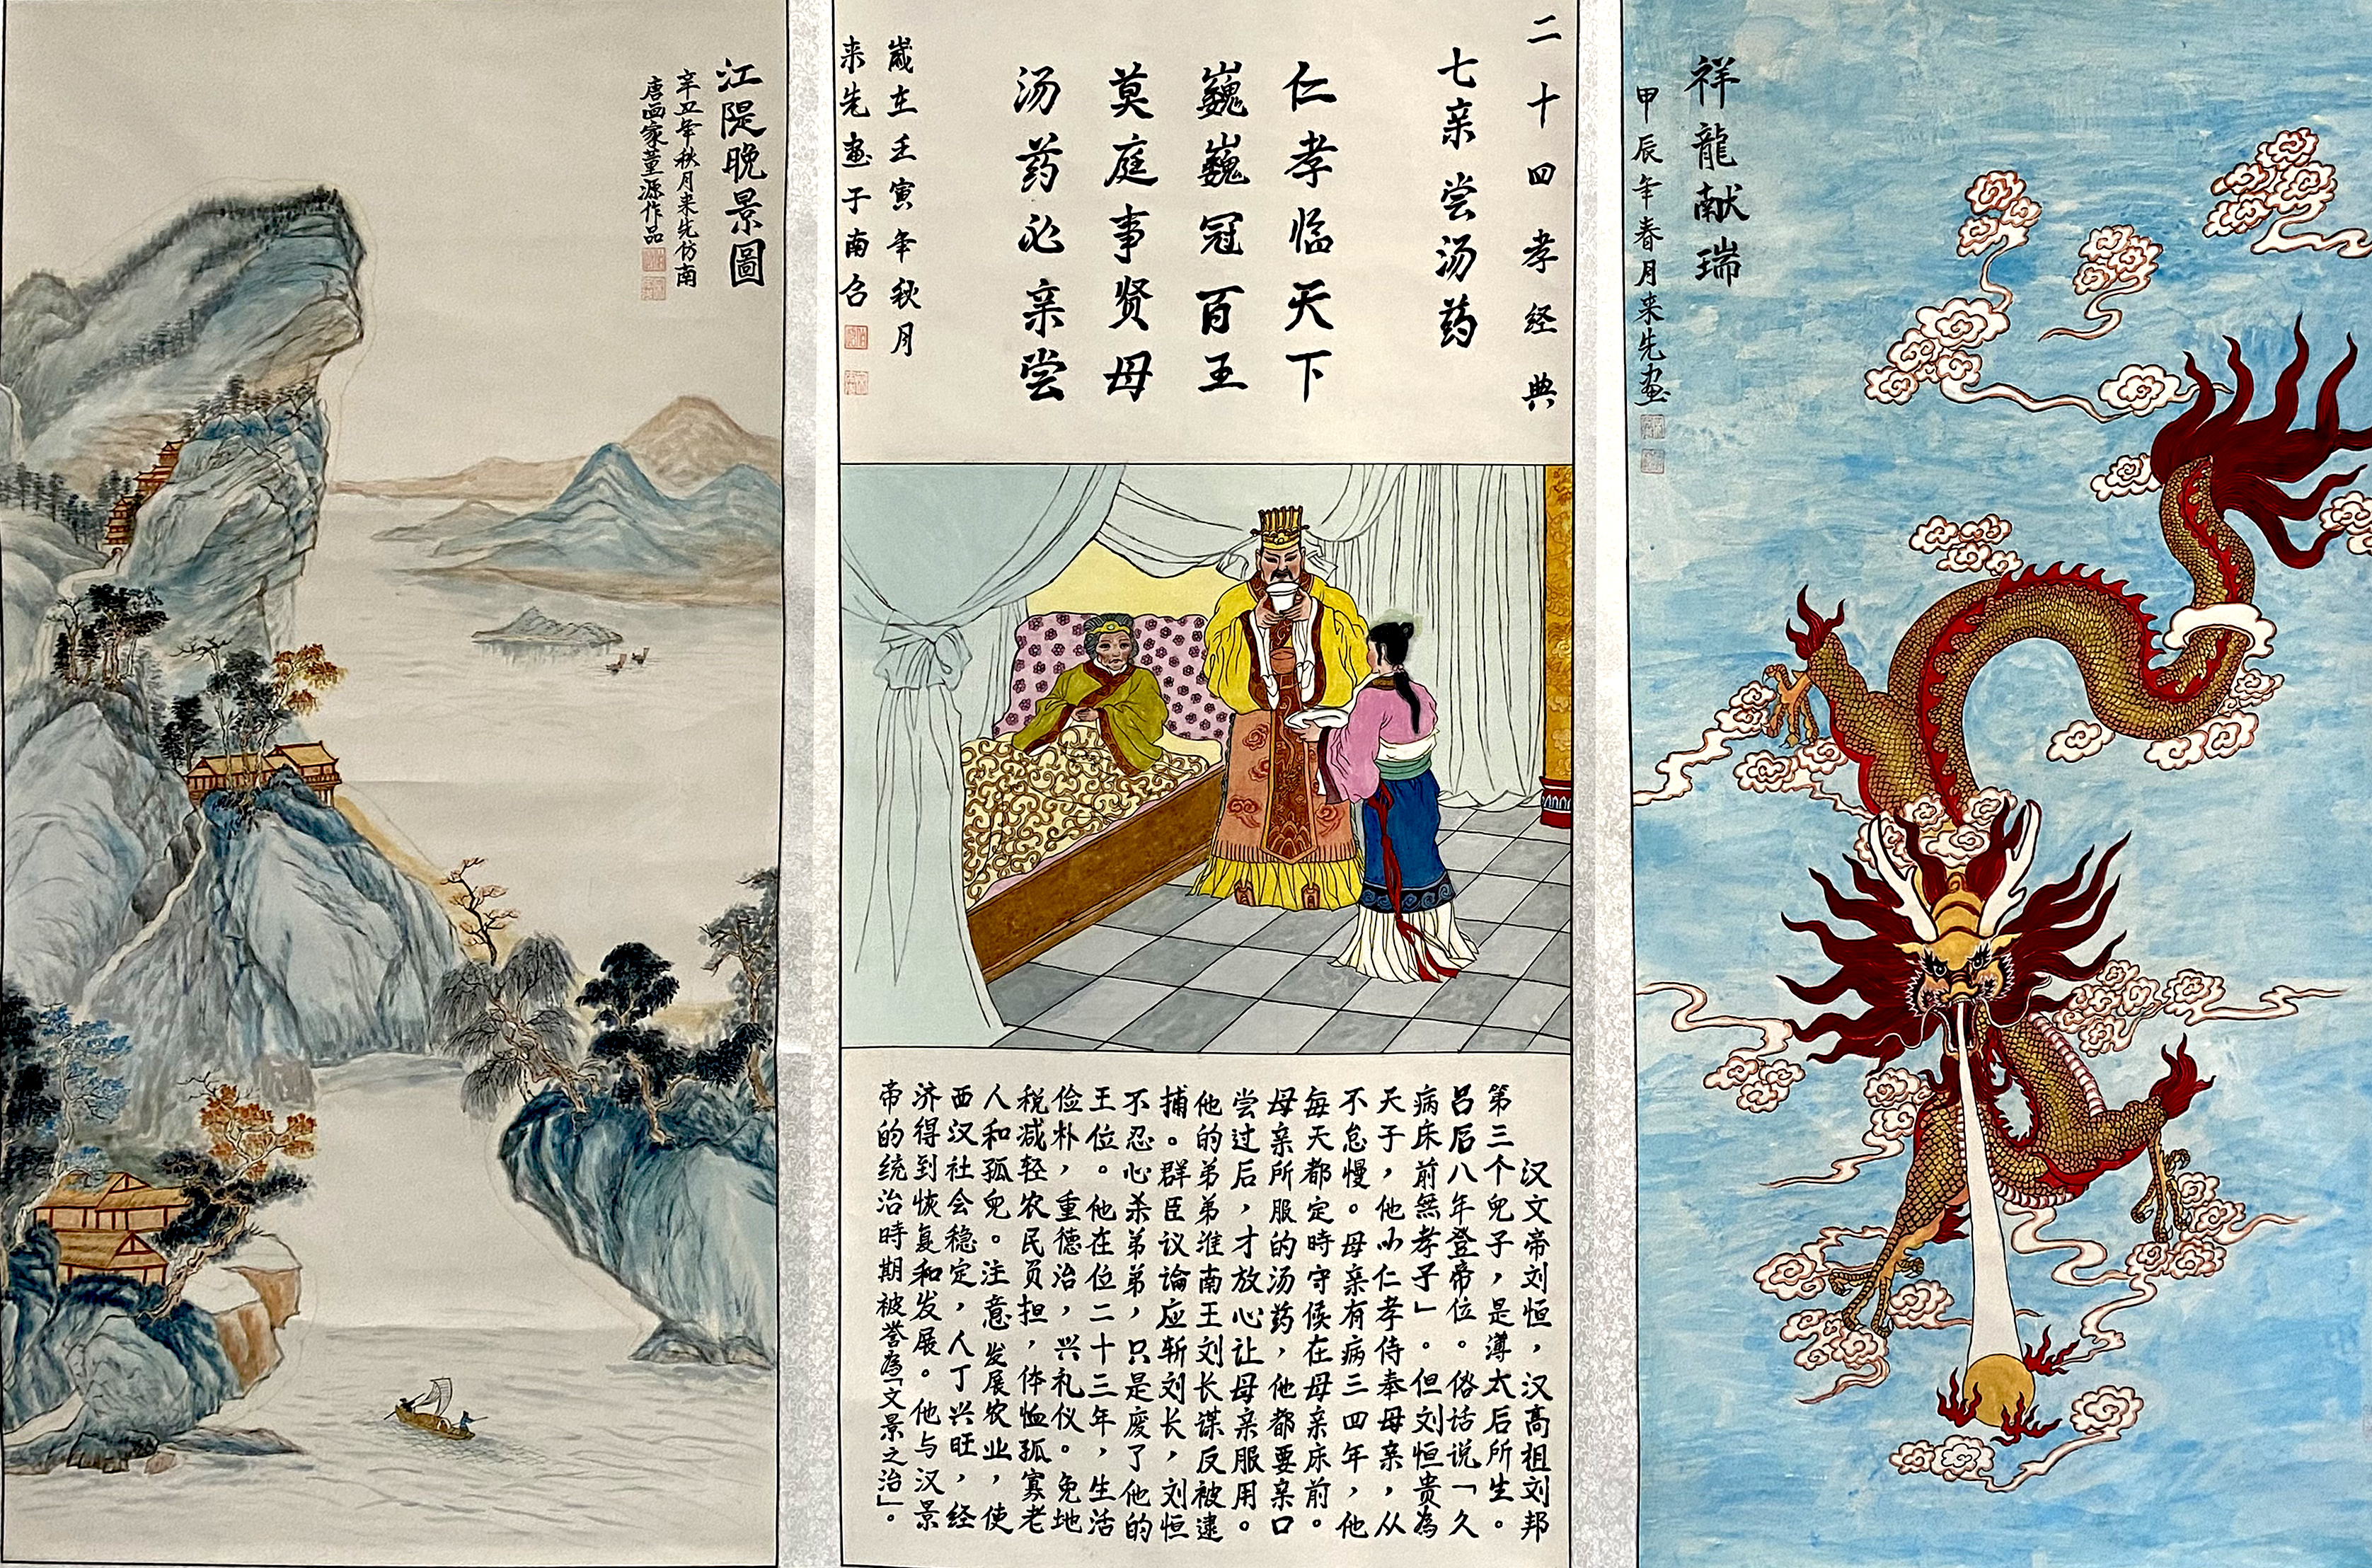 江隄晚景圖
辛丑年秋月来先仿南
唐画家董源作品
二十四孝经典
七亲尝汤药
仁孝临天下
巍巍冠百王
莫庭事贤母
汤药必亲尝
嵗在壬寅年秋月
来先画于南召
汉文帝刘恒，汉高祖刘邦
第三个兒子，是薄太后所生。
吕后八年登帝位。俗话说「久
病床前無孝子」。但刘恒贵為
天子，他以仁孝侍奉母亲，从
不怠慢。母亲有病三四年，他
每天都定時守候在母亲床前。
母亲所服的汤药，他都要亲口
尝过后，才放心让母亲服用。
他的弟弟淮南王刘长谋反被逮
捕。群臣议论应斩刘长，刘恒
不忍心杀弟弟，只是废了他的
王位。他在位二十三年，生活
俭朴，重德治，兴礼仪。免地
税减轻农民员担，体恤孤寡老
人和孤兒。注意发展农业，使
西汉社会稳定，人丁兴旺，经
济得到恢复和发展。他与汉景
帝的统治時期被誉為「文景之治」。
祥龍献瑞
甲辰年春月来先画